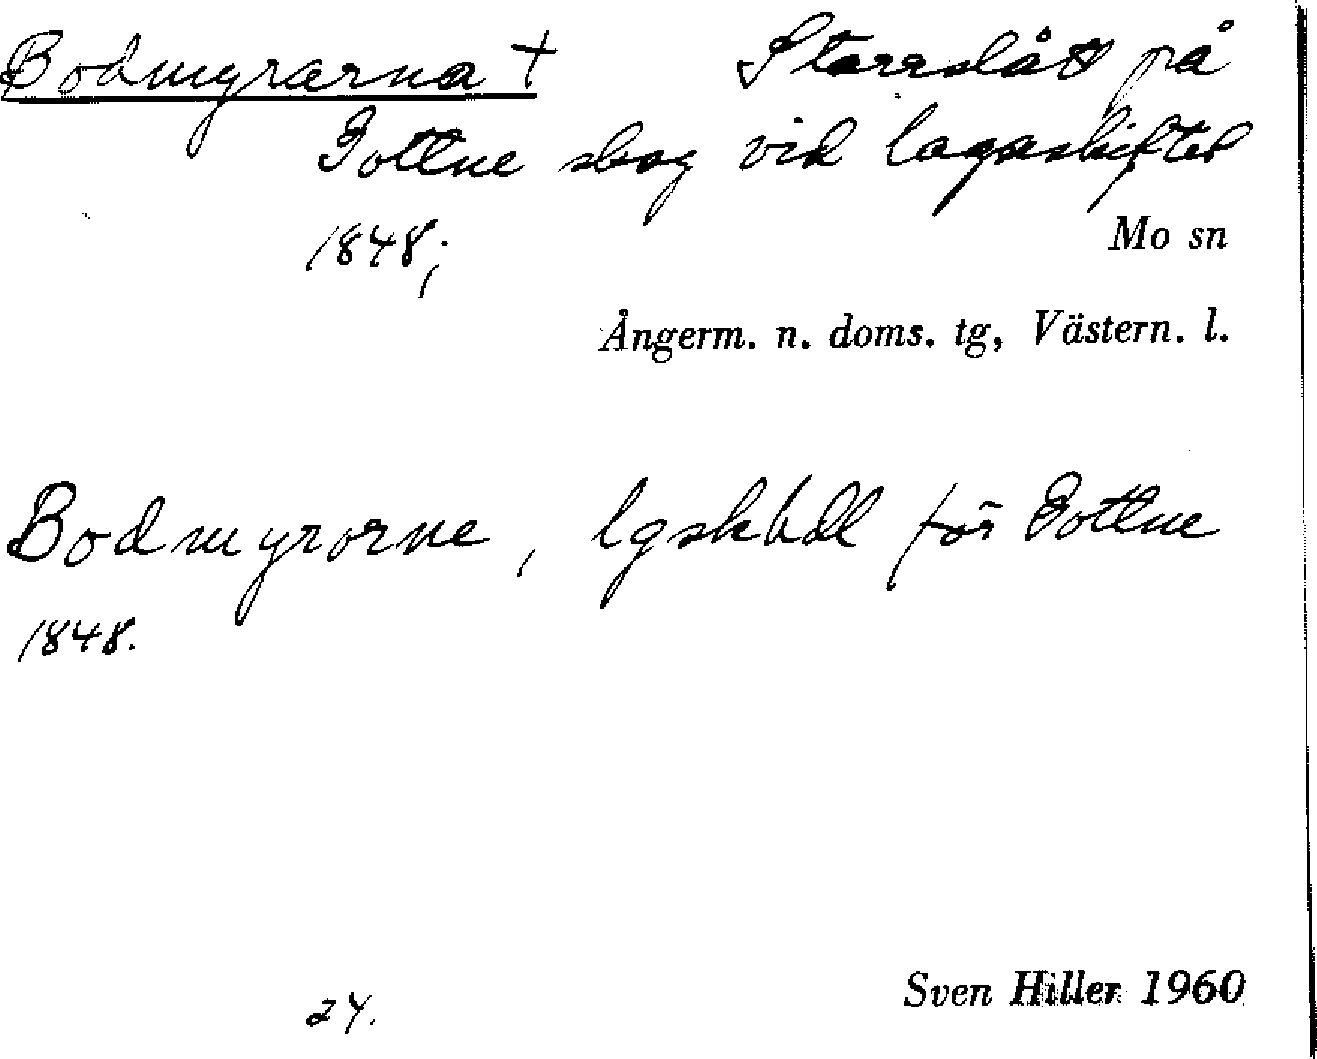 Bodmyrarna † Starrslått på
Gottne skog vid lagaskiftet
1848;
Mo sn
Ångerm. n. doms. tg, Västern. l.
Bodmyrorne, lgskhdl för Gottne
1848.
24.
Sven Hiller 1960